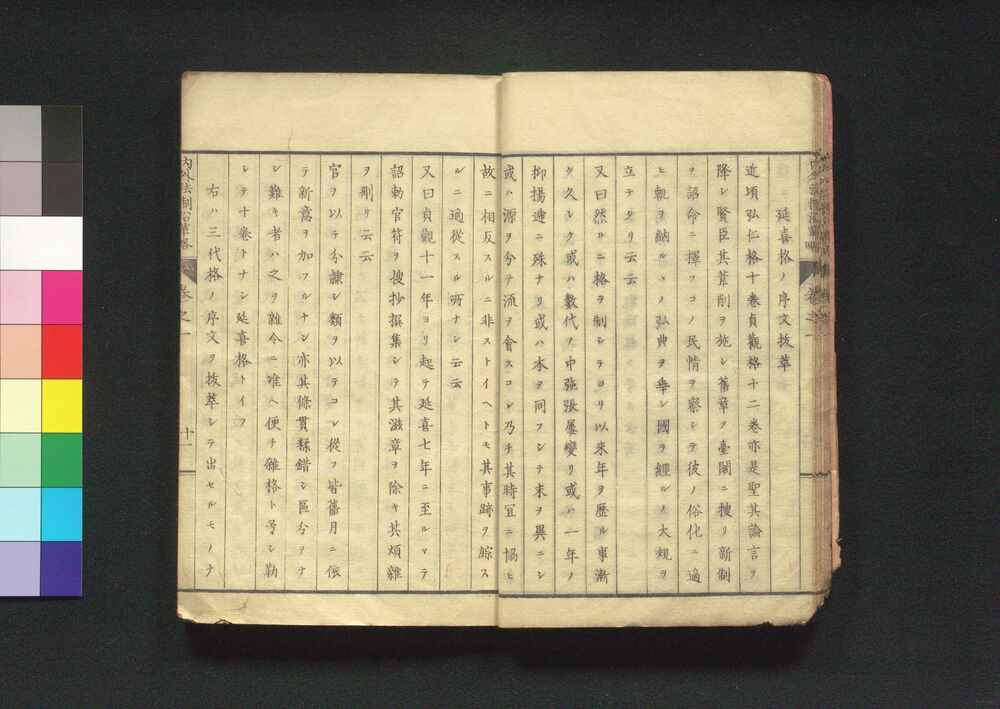 延喜格ノ序文抜萃
近項弘仁格十卷貞觀格十二卷亦是聖其論言ヲ
降シ賢臣其葦削ヲ施シ舊章ヲ臺閣ニ捜リ新制
ヲ詔命ニ擇フコノ民情ヲ察シテ彼ノ俗化ニ適
ヒ軌ヲ納ルヽノ弘典ヲ舉シ國ヲ經ルノ大規ヲ
立テタリ云云
又曰然ルニ格ヲ制シテヨリ以來年ヲ歴ル事漸
ク久シク或ハ數代ノ中弛張屢變リ或ハ一年ノ
抑揚遽ニ殊ナリ或ハ本ヲ同フシテ末ヲ異ニシ
或ハ源ヲ分テ流ヲ會スコレ乃チ其時冝ニ協ヒ
故ニ相反スルニ非ストイヘトモ其事跡ヲ綜ス
ルニ適從スル所ナシ云云
又曰貞觀十一年ヨリ起テ延喜七年ニ至ルマテ
詔勅官符ヲ捜抄撰集シテ其滋章ヲ除キ其煩雜
ヲ刪リ云云
官ヲ以テ分隷シ類ヲ以テコレ從フ皆舊月ニ依
テ新意ヲ加フルナシ亦其條貫糅錯シ區分ヲナ
シ難キ者ハ之ヲ雜令ニ准ヘ便チ雜格ト号シ勒
シテ十卷トナシ延喜格トイフ
右ハ三代格ノ序文ヲ抜萃シテ出セルモノナ
内外法制沿革畧
卷之一
十一